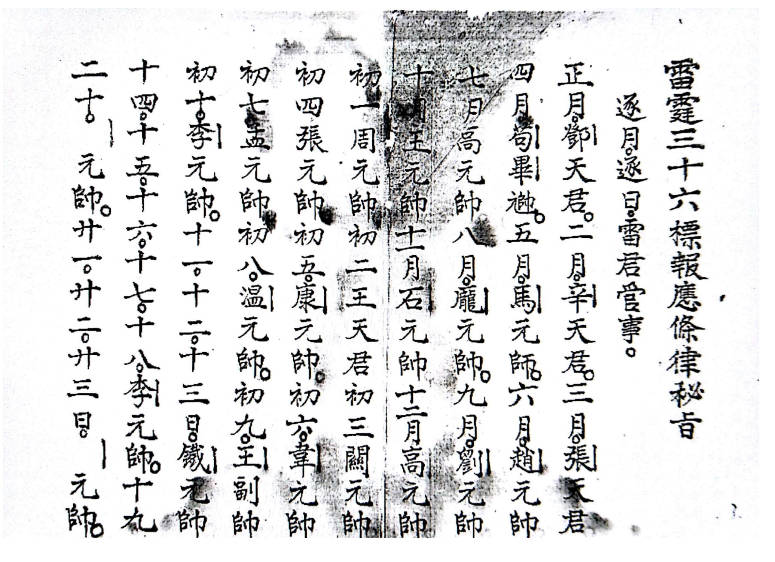 雷霆三十六標報應條律秘旨
逐月。逐日。雷君管事。
正月。鄧天君。二月。辛天君。三月。張天君
四月。苟畢。五月。馬元師。六月。趙元帥
七月高元帥八月。龐元帥。九月。劉元帥
十月王元帥十一月石元帥十二月高元帥
初一周元帥初二王天君初三關元帥
初四張元帥初五。康元帥。初六。韋元帥
初七。孟元帥初八。温元帥。初九。王副帥
初十。李元帥。十一。十二。十三日。鐵元帥
十四。十五。十六。十七。十八。李元帥。十九
二十。元帥。廿一。廿二。廿三日。元帥。